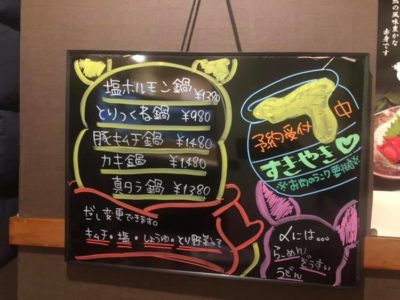 塩ホルモン鍋 ¥1380
とりつくね鍋 ¥980
豚キムチ鍋 ¥1480
カキ鍋 ¥1480
真タラ鍋 ¥1380
だし変更できます。
キムチ・塩・しょうゆ・とり野菜みそ
予約受付中
すきやき
※お肉のランク要相談
〆には。。。
らーめん
ぞうすい
うどん
の風味豊かな
赤身です